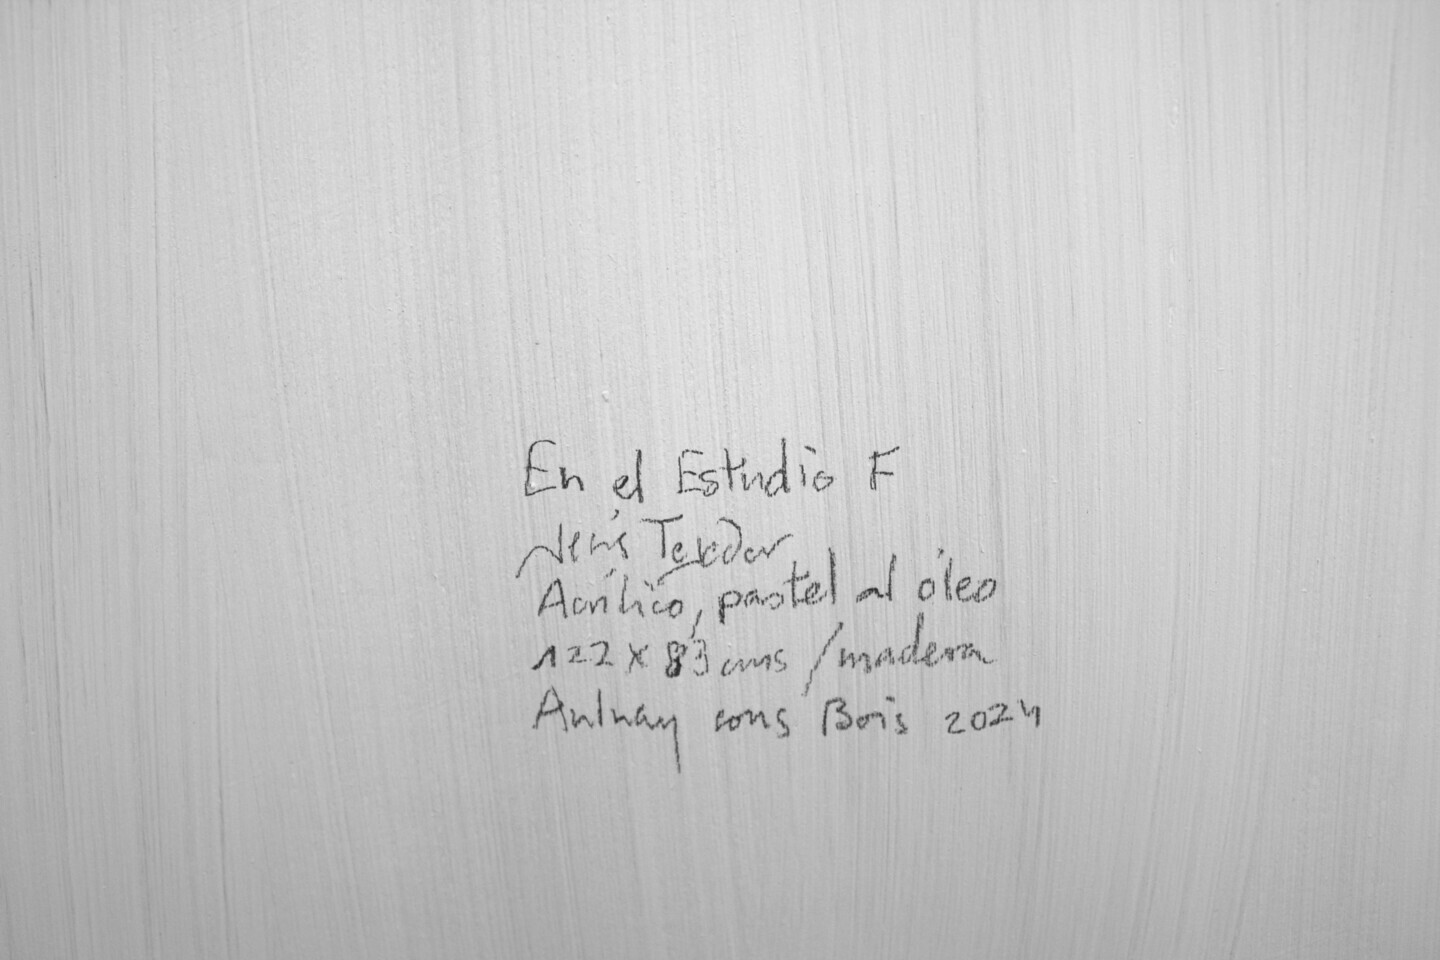 En el Estudio F
Jesús Tejedor
Acrílico, pastel al óleo
122 x 83 cms /madera
Aulnay sous Bois 2024